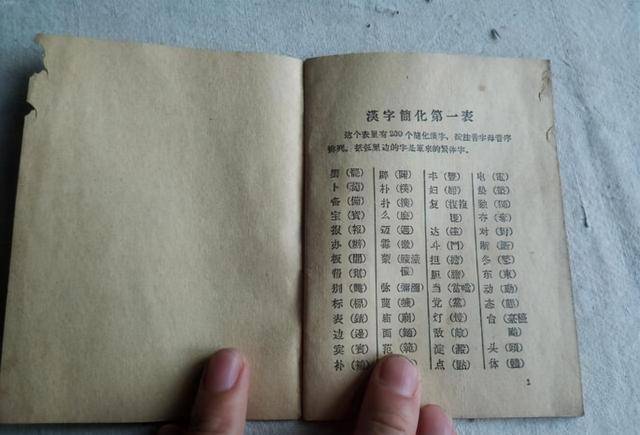 漢字簡化第一表
这个表里有230个簡化漢字，按注音字母音序
排列。括弧里边的字是原來的繁体字。
罢(罷)
卜(蔔)
备(備)
宝(寶)
报(報)
办(辦)
板(闆)
帮(幫)
别(彆)
标(標)
表(錶)
边(邊)
宾(賓)
补(補)
辟(闢)
朴(樸)
扑(撲)
么(麽)
迈(邁)
霉(黴)
蒙(矇濛
懞)
弥(彌瀰)
蔑(衊)
庙(廟)
面(麵)
范(範)
丰(豐)
妇(婦)
复(復複
覆)
达(達)
斗(鬥)
担(擔)
胆(膽)
当(當噹)
党(黨)
灯(燈)
敌(敵)
淀(澱)
点(點)
电(電)
垫(墊)
独(獨)
夺(奪)
对(對)
断(斷)
冬(鼕)
东(東)
动(動)
态(態)
台(臺檯
颱)
头(頭)
体(體)
1